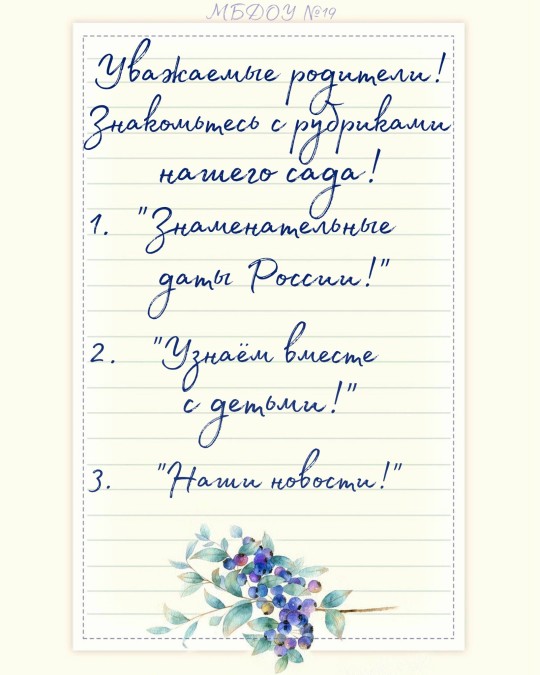 МБДОУ №19
Уважаемые родители!
Знакомьтесь с рубриками
нашего сада!
1. "Знаменательные
даты России!"
2. "Узнаём вместе
с детьми!"
3. "Наши новости!"